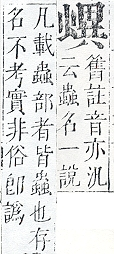 舊註音亦汎
云蟲名一說
凡載蟲部者皆蟲也存
名不考實非俗卽譌